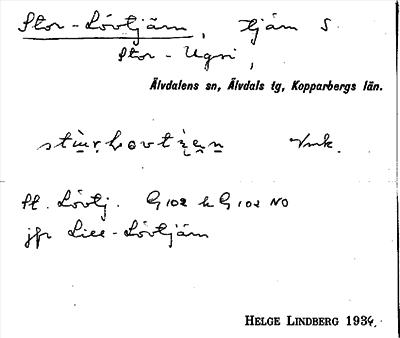 Stor-Lövtjärn, tjärn S.
Stor-Ugsi,
Älvdalens sn, Älvdals tg, Kopparbergs län.
Vmk.
St. Lövtj. G 102 & G 102 NO
jfr Lill-Lövtjärn
HELGE LINDBERG 1934.